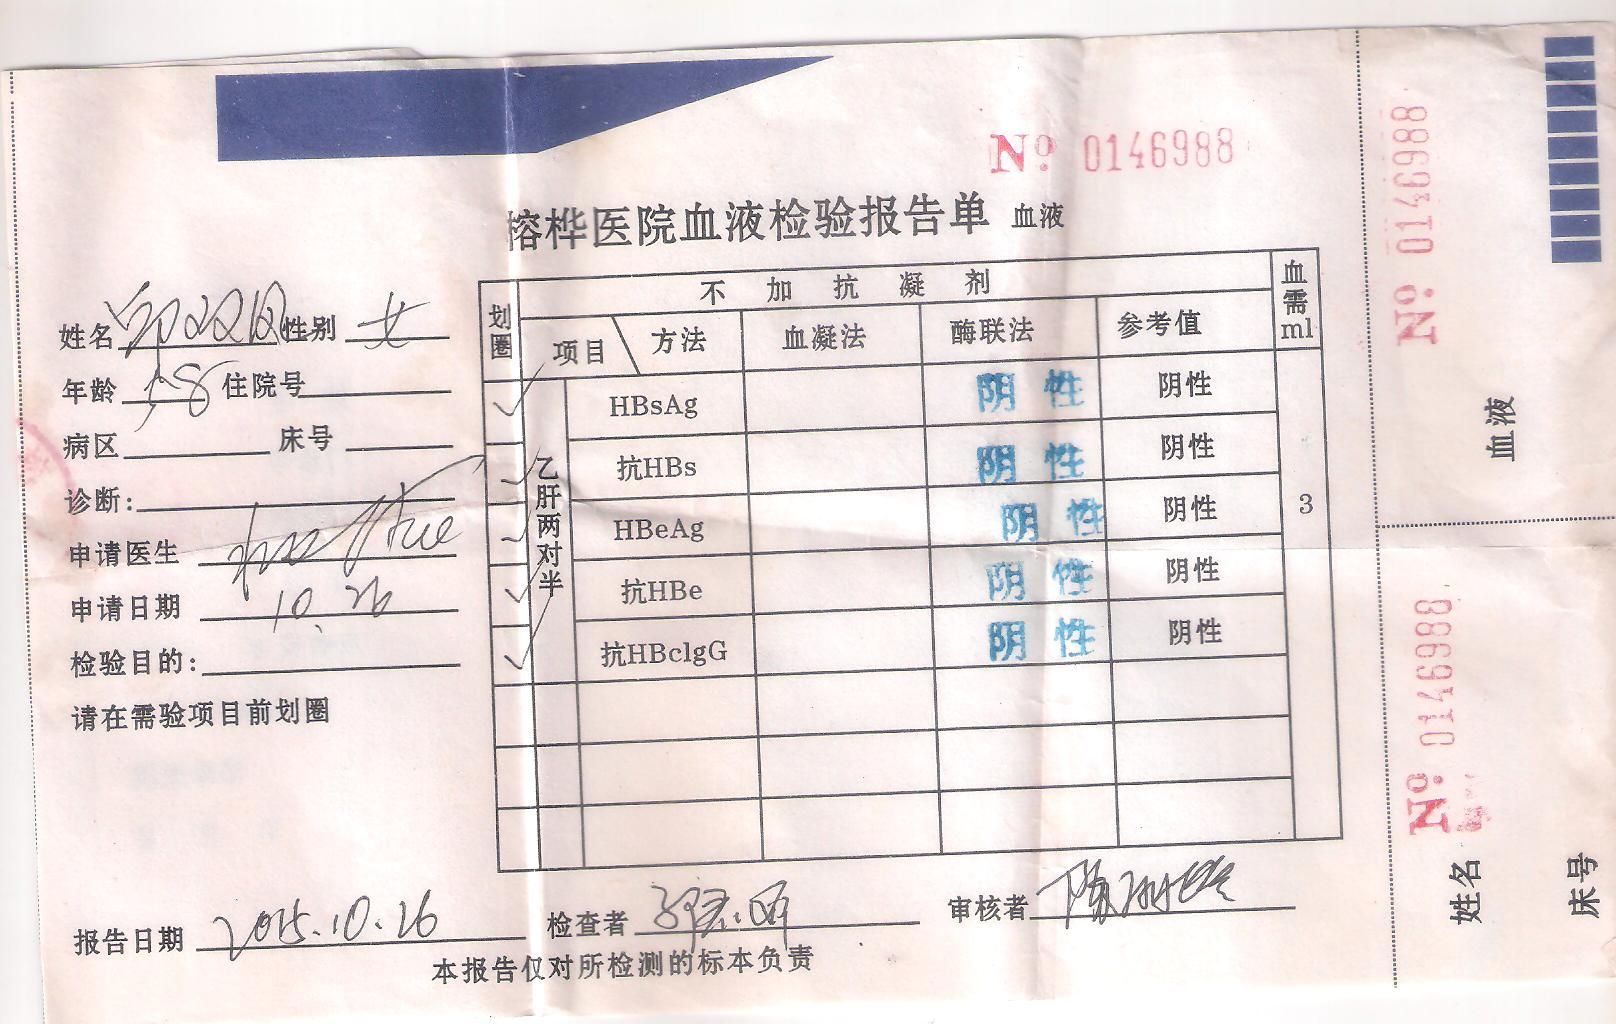 № 0146988
榕桦医院血液检验报告单 血液
姓名 性别 女
年龄 58 住院号
病区 床号
诊断:
申请医生
申请日期 10.26
检验目的:
请在需验项目前划圈
划圈 不加抗凝剂 血需ml
项目 方法 血凝法 酶联法 参考值
乙肝两对半
HBsAg 阴性 阴性
抗HBs 阴性 阴性
HBeAg 阴性 阴性
抗HBe 阴性 阴性
抗HBclgG 阴性 阴性
3
报告日期 2015.10.26 检查者 审核者
本报告仅对所检测的标本负责
№ 0146988
血液
№ 0146988
姓名
床号